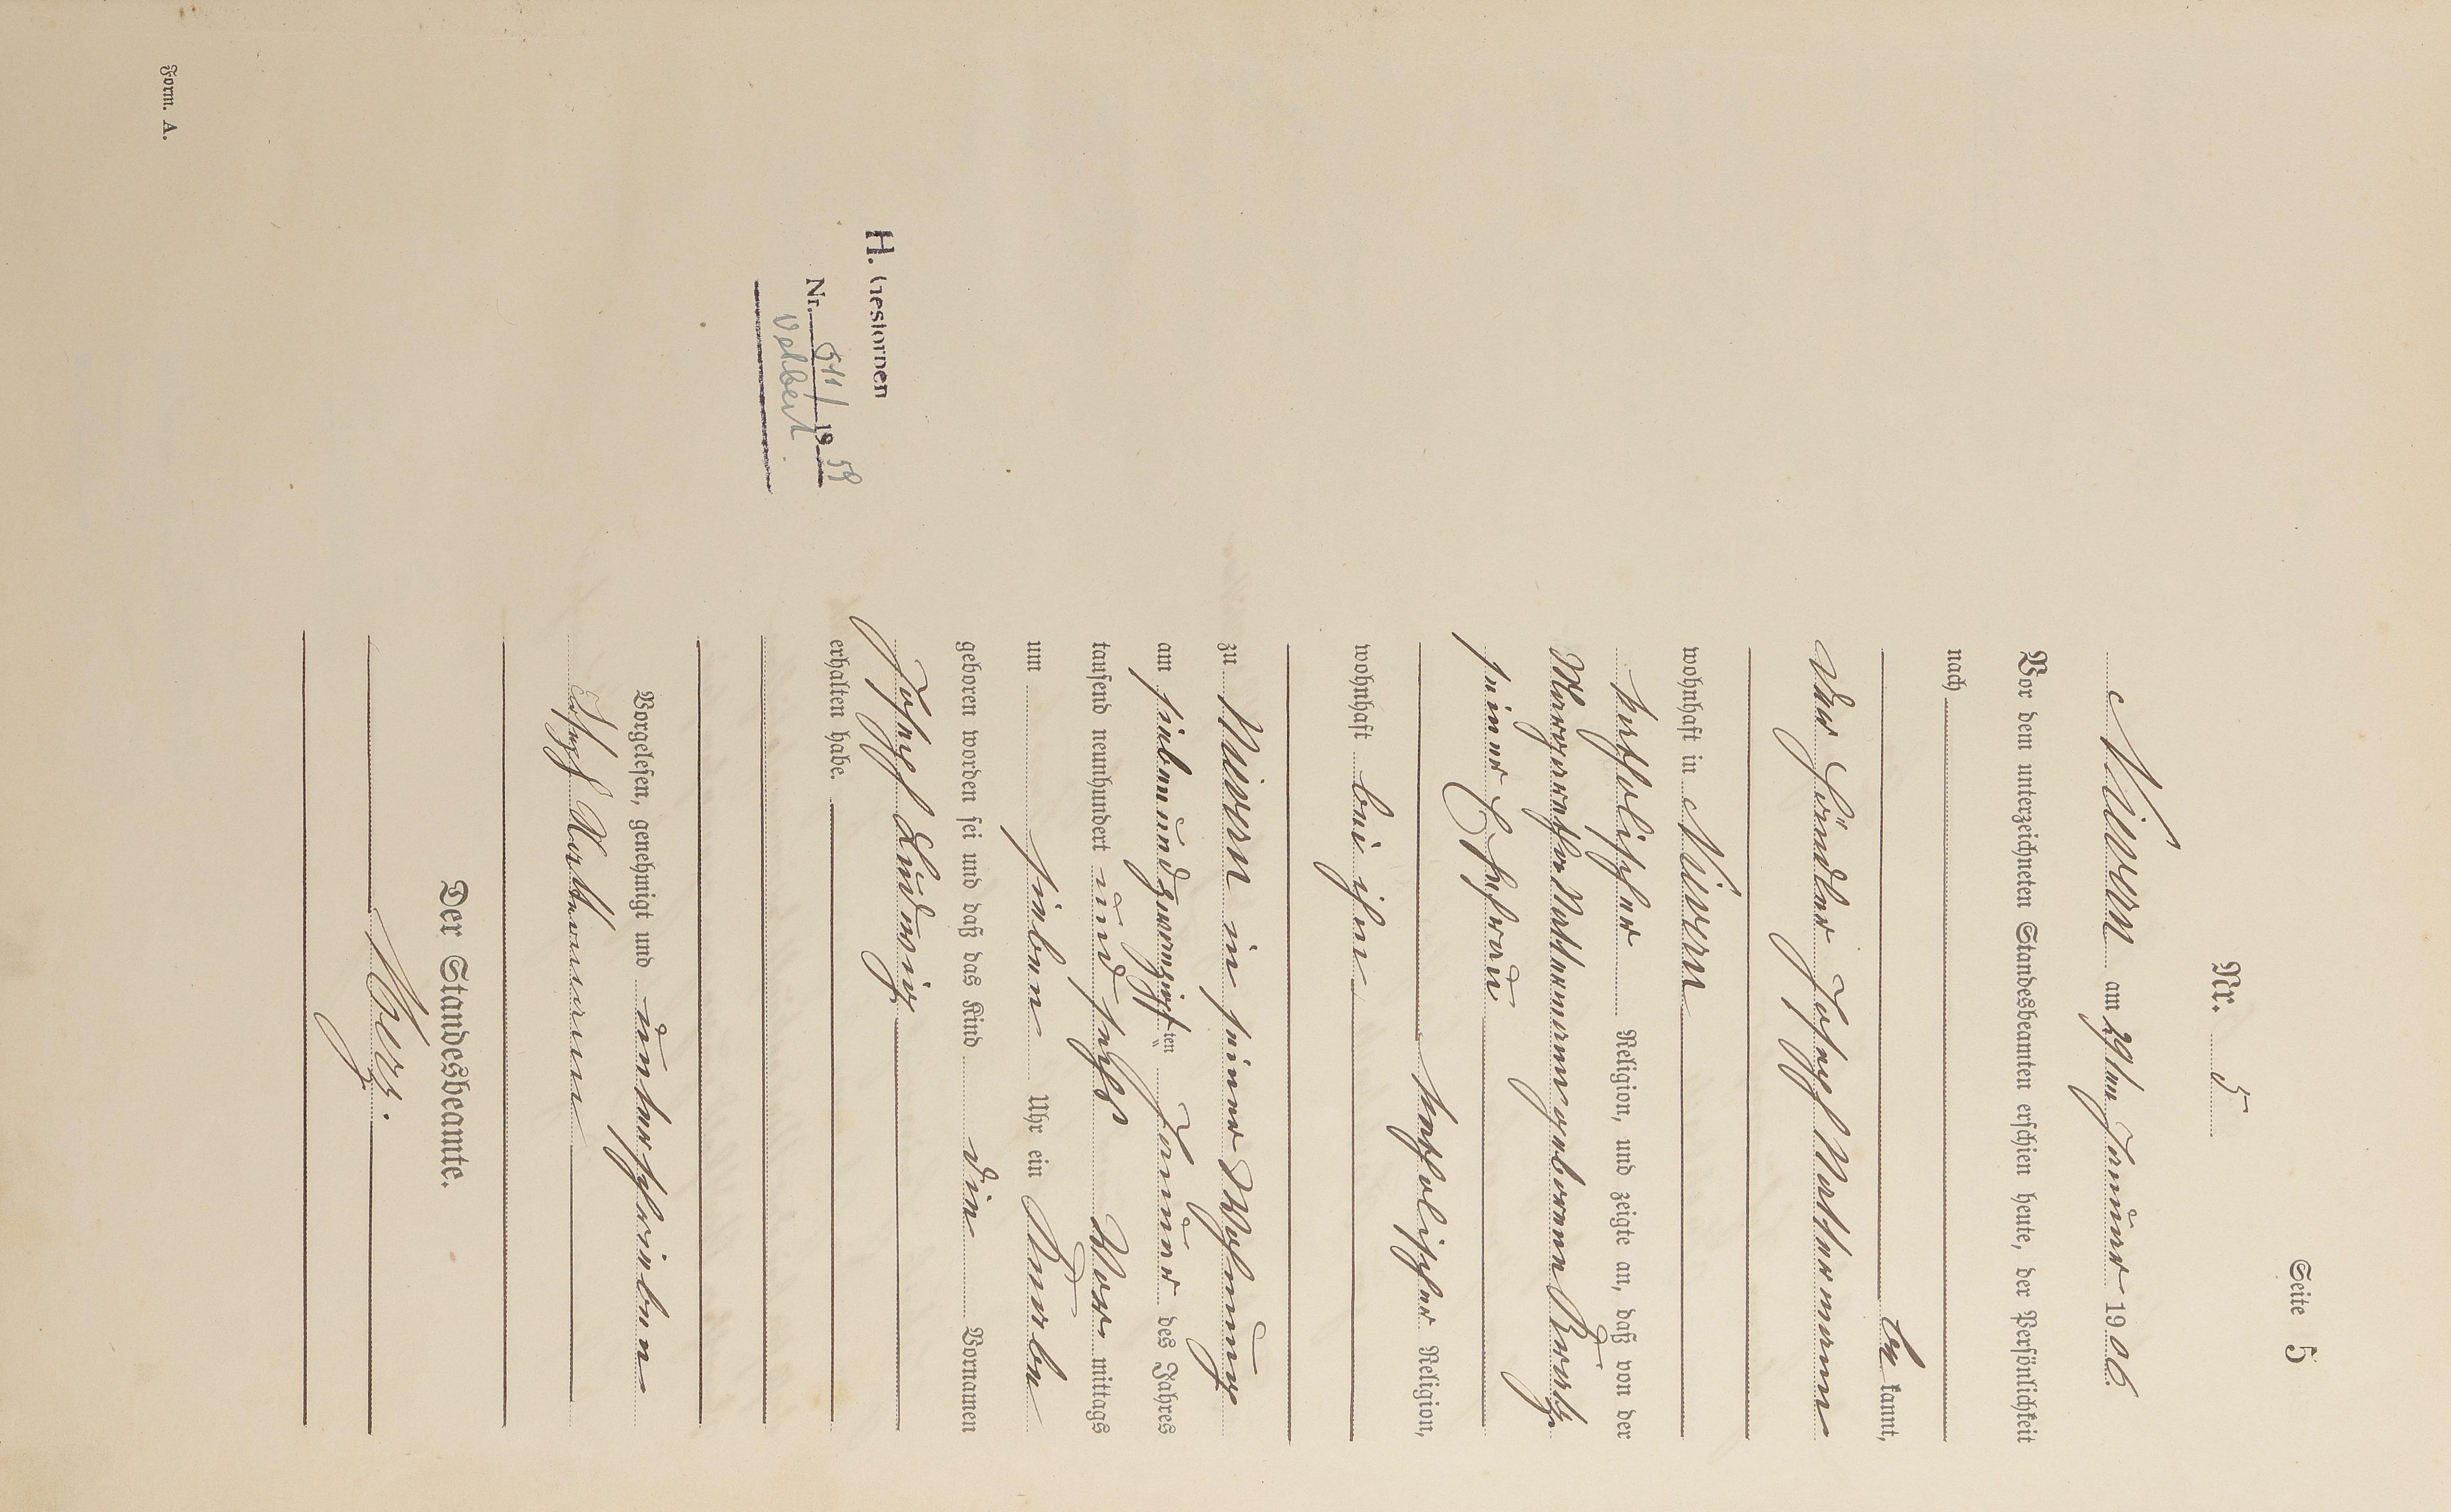 Seite 5
Nr. 5
Nievern am 29ten Januar 1906
Vor dem unterzeichneten Standesbeamten erschien heute, der Persönlichkeit
nach
be kannt,
der Händler Josef Kattermann
wohnhaft in Nievern
katholischer Religion, und zeigte an, daß von der
Margaretha Kattermann geborenen
seiner Ehefrau
katholischer Religion,
wohnhaft bei ihm
zu Nievern in seiner Wohnung
am siebenundzwanzigsten Januar des Jahres
tausend neunhundert und sechs Vor mittags
um sieben Uhr ein Knabe
geboren worden sei und daß das Kind die Vornamen
Josef Ludwig
erhalten habe.
H. Gestorben
Nr. 511/1958
Velbert.
Vorgelesen, genehmigt und unterschrieben
Josef Kattermann
Der Standesbeamte.
Form. A.